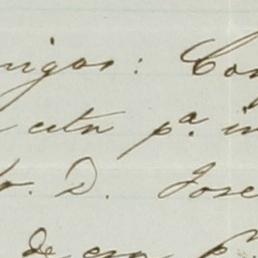 migos: Con
esta pª. in
r. D. Jose
de esa pª